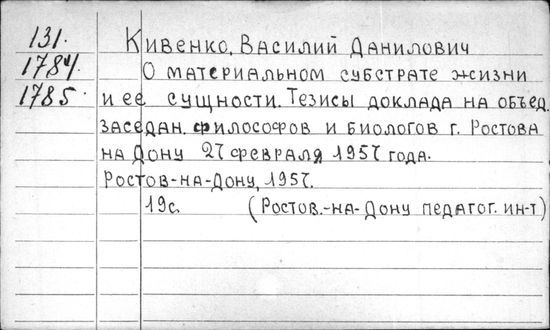 131. Кивенко, Василий Данилович
1784. О материальном субстрате жизни
1785. и ее сущности. Тезисы доклада на объед.
заседан. философов и биологов г. Ростова
на Дону 27 февраля 1957 года.
Ростов-на-Дону, 1957.
19с. (Ростов.-на-Дону педагог. ин-т)